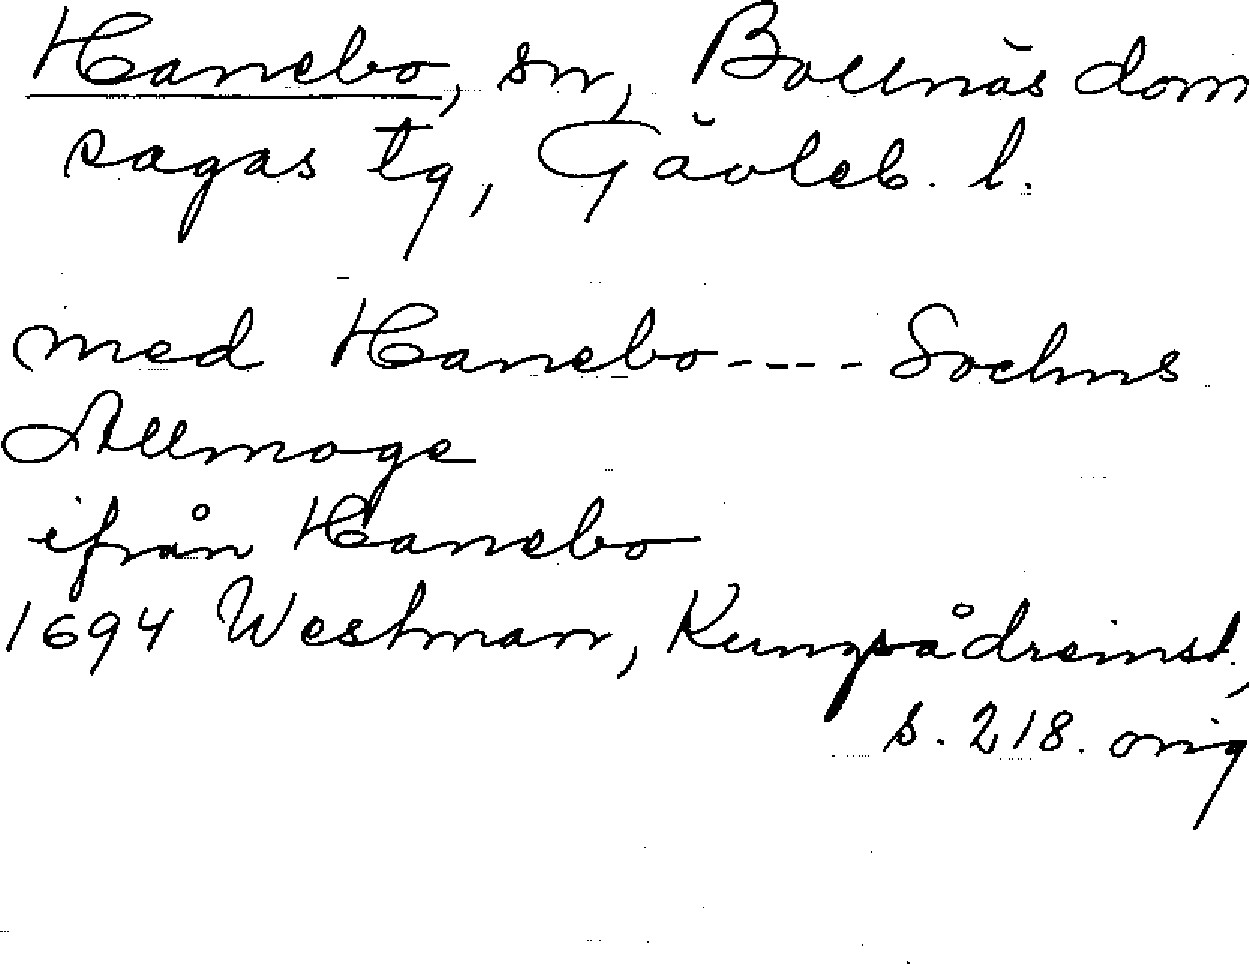 Hanebo, sn, Bollnäs dom
sagas tg, Gävleb. l.
med Hanebo---- Sochns
Allmoge
ifrån Hanebo
1694 Westman, Kungsådreinst.,
s. 218. orig